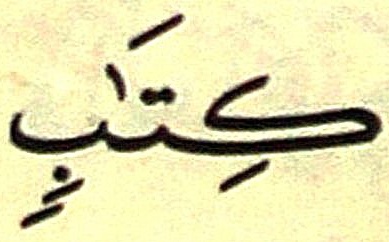 كِتَٰبٍ